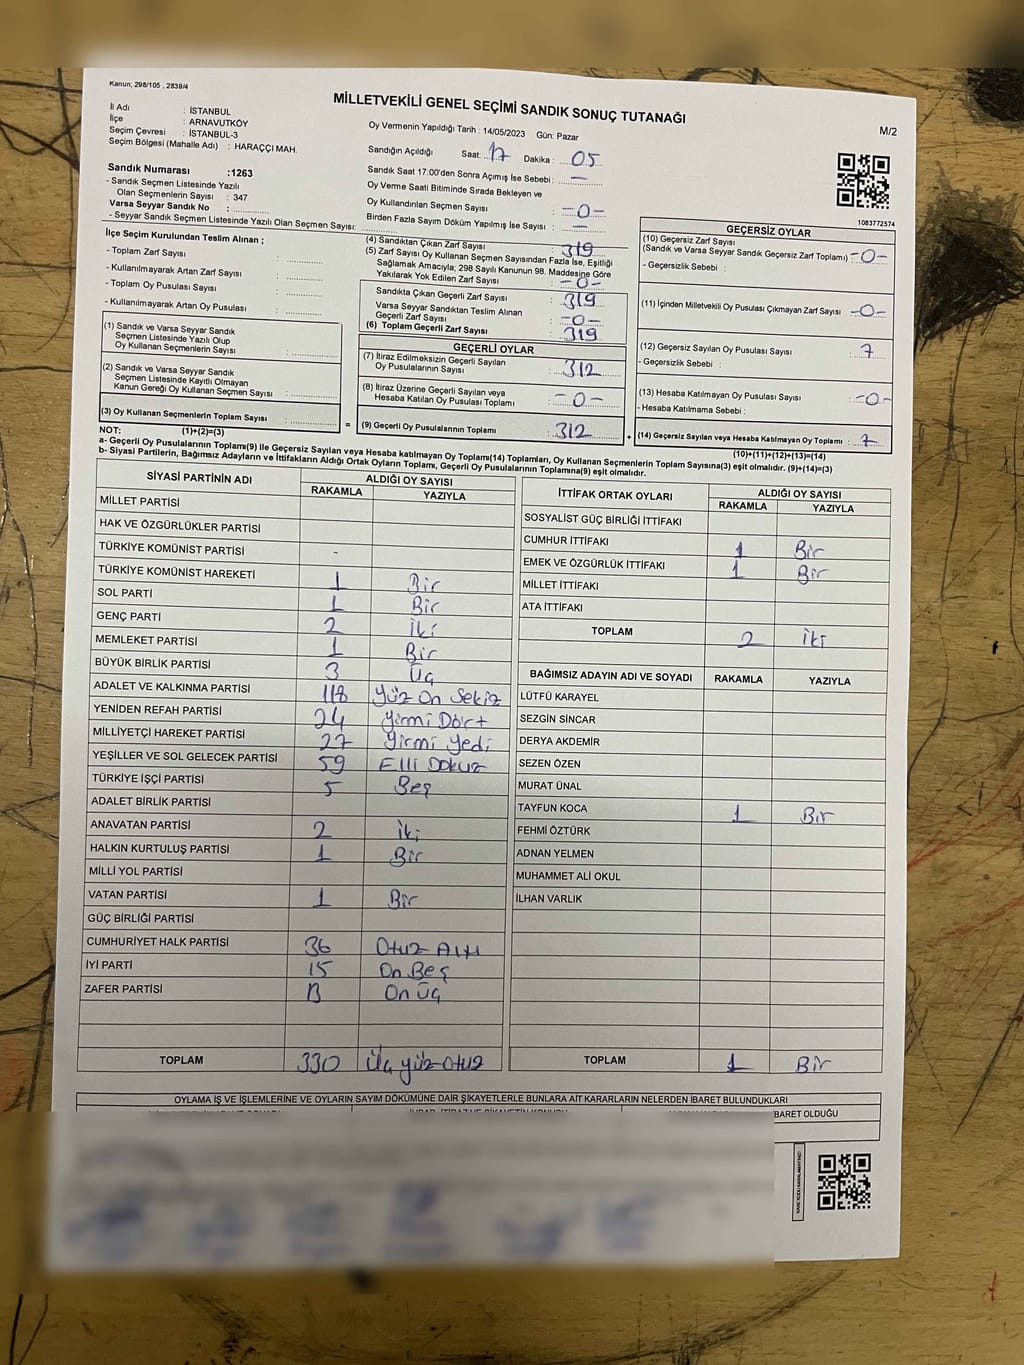 Kanun; 298/105 , 2839/4
MİLLETVEKİLİ GENEL SEÇİMİ SANDIK SONUÇ TUTANAĞI
M/2
İl Adı : İSTANBUL
İlçe : ARNAVUTKÖY
Seçim Çevresi : İSTANBUL-3
Seçim Bölgesi (Mahalle Adı) : HARAÇÇI MAH.
Oy Vermenin Yapıldığı Tarih : 14/05/2023 Gün: Pazar
Sandığın Açıldığı Saat: 17 Dakika : 05
Sandık Saat 17:00'den Sonra Açımış İse Sebebi : —
Oy Verme Saati Bitiminde Sırada Bekleyen ve
Oy Kullandırılan Seçmen Sayısı : -0-
Birden Fazla Sayım Döküm Yapılmış İse Sayısı : —
Sandık Numarası :1263
- Sandık Seçmen Listesinde Yazılı
Olan Seçmenlerin Sayısı : 347
Varsa Seyyar Sandık No :
- Seyyar Sandık Seçmen Listesinde Yazılı Olan Seçmen Sayısı:
1083772574
İlçe Seçim Kurulundan Teslim Alınan ;
- Toplam Zarf Sayısı :
- Kullanılmayarak Artan Zarf Sayısı :
- Toplam Oy Pusulası Sayısı :
- Kullanılmayarak Artan Oy Pusulası :
(1) Sandık ve Varsa Seyyar Sandık
Seçmen Listesinde Yazılı Olup
Oy Kullanan Seçmenlerin Sayısı :
(2) Sandık ve Varsa Seyyar Sandık
Seçmen Listesinde Kayıtlı Olmayan
Kanun Gereği Oy Kullanan Seçmen Sayısı :
(3) Oy Kullanan Seçmenlerin Toplam Sayısı :
(4) Sandıktan Çıkan Zarf Sayısı : 319
(5) Zarf Sayısı Oy Kullanan Seçmen Sayısından Fazla İse, Eşitliği
Sağlamak Amacıyla; 298 Sayılı Kanunun 98. Maddesine Göre
Yakılarak Yok Edilen Zarf Sayısı : -0-
Sandıkta Çıkan Geçerli Zarf Sayısı : 319
Varsa Seyyar Sandıktan Teslim Alınan
Geçerli Zarf Sayısı : -0-
(6) Toplam Geçerli Zarf Sayısı : 319
GEÇERLİ OYLAR
(7) İtiraz Edilmeksizin Geçerli Sayılan
Oy Pusulalarının Sayısı : 312
(8) İtiraz Üzerine Geçerli Sayılan veya
Hesaba Katılan Oy Pusulası Toplamı : -0-
= (9) Geçerli Oy Pusulalarının Toplamı : 312
GEÇERSİZ OYLAR
(10) Geçersiz Zarf Sayısı
(Sandık ve Varsa Seyyar Sandık Geçersiz Zarf Toplamı) : -0-
- Geçersizlik Sebebi :
(11) İçinden Milletvekili Oy Pusulası Çıkmayan Zarf Sayısı : -0-
(12) Geçersiz Sayılan Oy Pusulası Sayısı : 7
- Geçersizlik Sebebi :
(13) Hesaba Katılmayan Oy Pusulası Sayısı : -0-
- Hesaba Katılmama Sebebi :
+ (14) Geçersiz Sayılan veya Hesaba Katılmayan Oy Toplamı : 7
NOT: (1)+(2)=(3)
(10)+(11)+(12)+(13)=(14)
a- Geçerli Oy Pusulalarının Toplam(9) ile Geçersiz Sayılan veya Hesaba katılmayan Oy Toplam(14) Toplamları, Oy Kullanan Seçmenlerin Toplam Sayısına(3) eşit olmalıdır. (9)+(14)=(3)
b- Siyasi Partilerin, Bağımsız Adayların ve İttifakların Aldığı Ortak Oyların Toplamı, Geçerli Oy Pusulalarının Toplamına(9) eşit olmalıdır.
SİYASİ PARTİNİN ADI ALDIĞI OY SAYISI
RAKAMLA YAZIYLA
MİLLET PARTİSİ
HAK VE ÖZGÜRLÜKLER PARTİSİ
TÜRKİYE KOMÜNİST PARTİSİ -
TÜRKİYE KOMÜNİST HAREKETİ 1 Bir
SOL PARTİ 1 Bir
GENÇ PARTİ 2 İki
MEMLEKET PARTİSİ 1 Bir
BÜYÜK BİRLİK PARTİSİ 3 Üç
ADALET VE KALKINMA PARTİSİ 118 Yüz On Sekiz
YENİDEN REFAH PARTİSİ 24 Yirmi Dört
MİLLİYETÇİ HAREKET PARTİSİ 27 Yirmi Yedi
YEŞİLLER VE SOL GELECEK PARTİSİ 59 Elli Dokuz
TÜRKİYE İŞÇİ PARTİSİ 5 Beş
ADALET BİRLİK PARTİSİ
ANAVATAN PARTİSİ 2 İki
HALKIN KURTULUŞ PARTİSİ 1 Bir
MİLLİ YOL PARTİSİ
VATAN PARTİSİ 1 Bir
GÜÇ BİRLİĞİ PARTİSİ
CUMHURİYET HALK PARTİSİ 36 Otuz Altı
İYİ PARTİ 15 On Beş
ZAFER PARTİSİ 13 On Üç
TOPLAM 330 Üç yüz otuz
İTTİFAK ORTAK OYLARI ALDIĞI OY SAYISI
RAKAMLA YAZIYLA
SOSYALİST GÜÇ BİRLİĞİ İTTİFAKI
CUMHUR İTTİFAKI 1 Bir
EMEK VE ÖZGÜRLÜK İTTİFAKI 1 Bir
MİLLET İTTİFAKI
ATA İTTİFAKI
TOPLAM 2 İki
BAĞIMSIZ ADAYIN ADI VE SOYADI RAKAMLA YAZIYLA
LÜTFÜ KARAYEL
SEZGİN SİNCAR
DERYA AKDEMİR
SEZEN ÖZEN
MURAT ÜNAL
TAYFUN KOCA 1 Bir
FEHMİ ÖZTÜRK
ADNAN YELMEN
MUHAMMET ALİ OKUL
İLHAN VARLIK
TOPLAM 1 Bir
OYLAMA İŞ VE İŞLEMLERİNE VE OYLARIN SAYIM DÖKÜMÜNE DAİR ŞİKAYETLERLE BUNLARA AİT KARARLARIN NELERDEN İBARET BULUNDUKLARI
BARET OLDUĞU